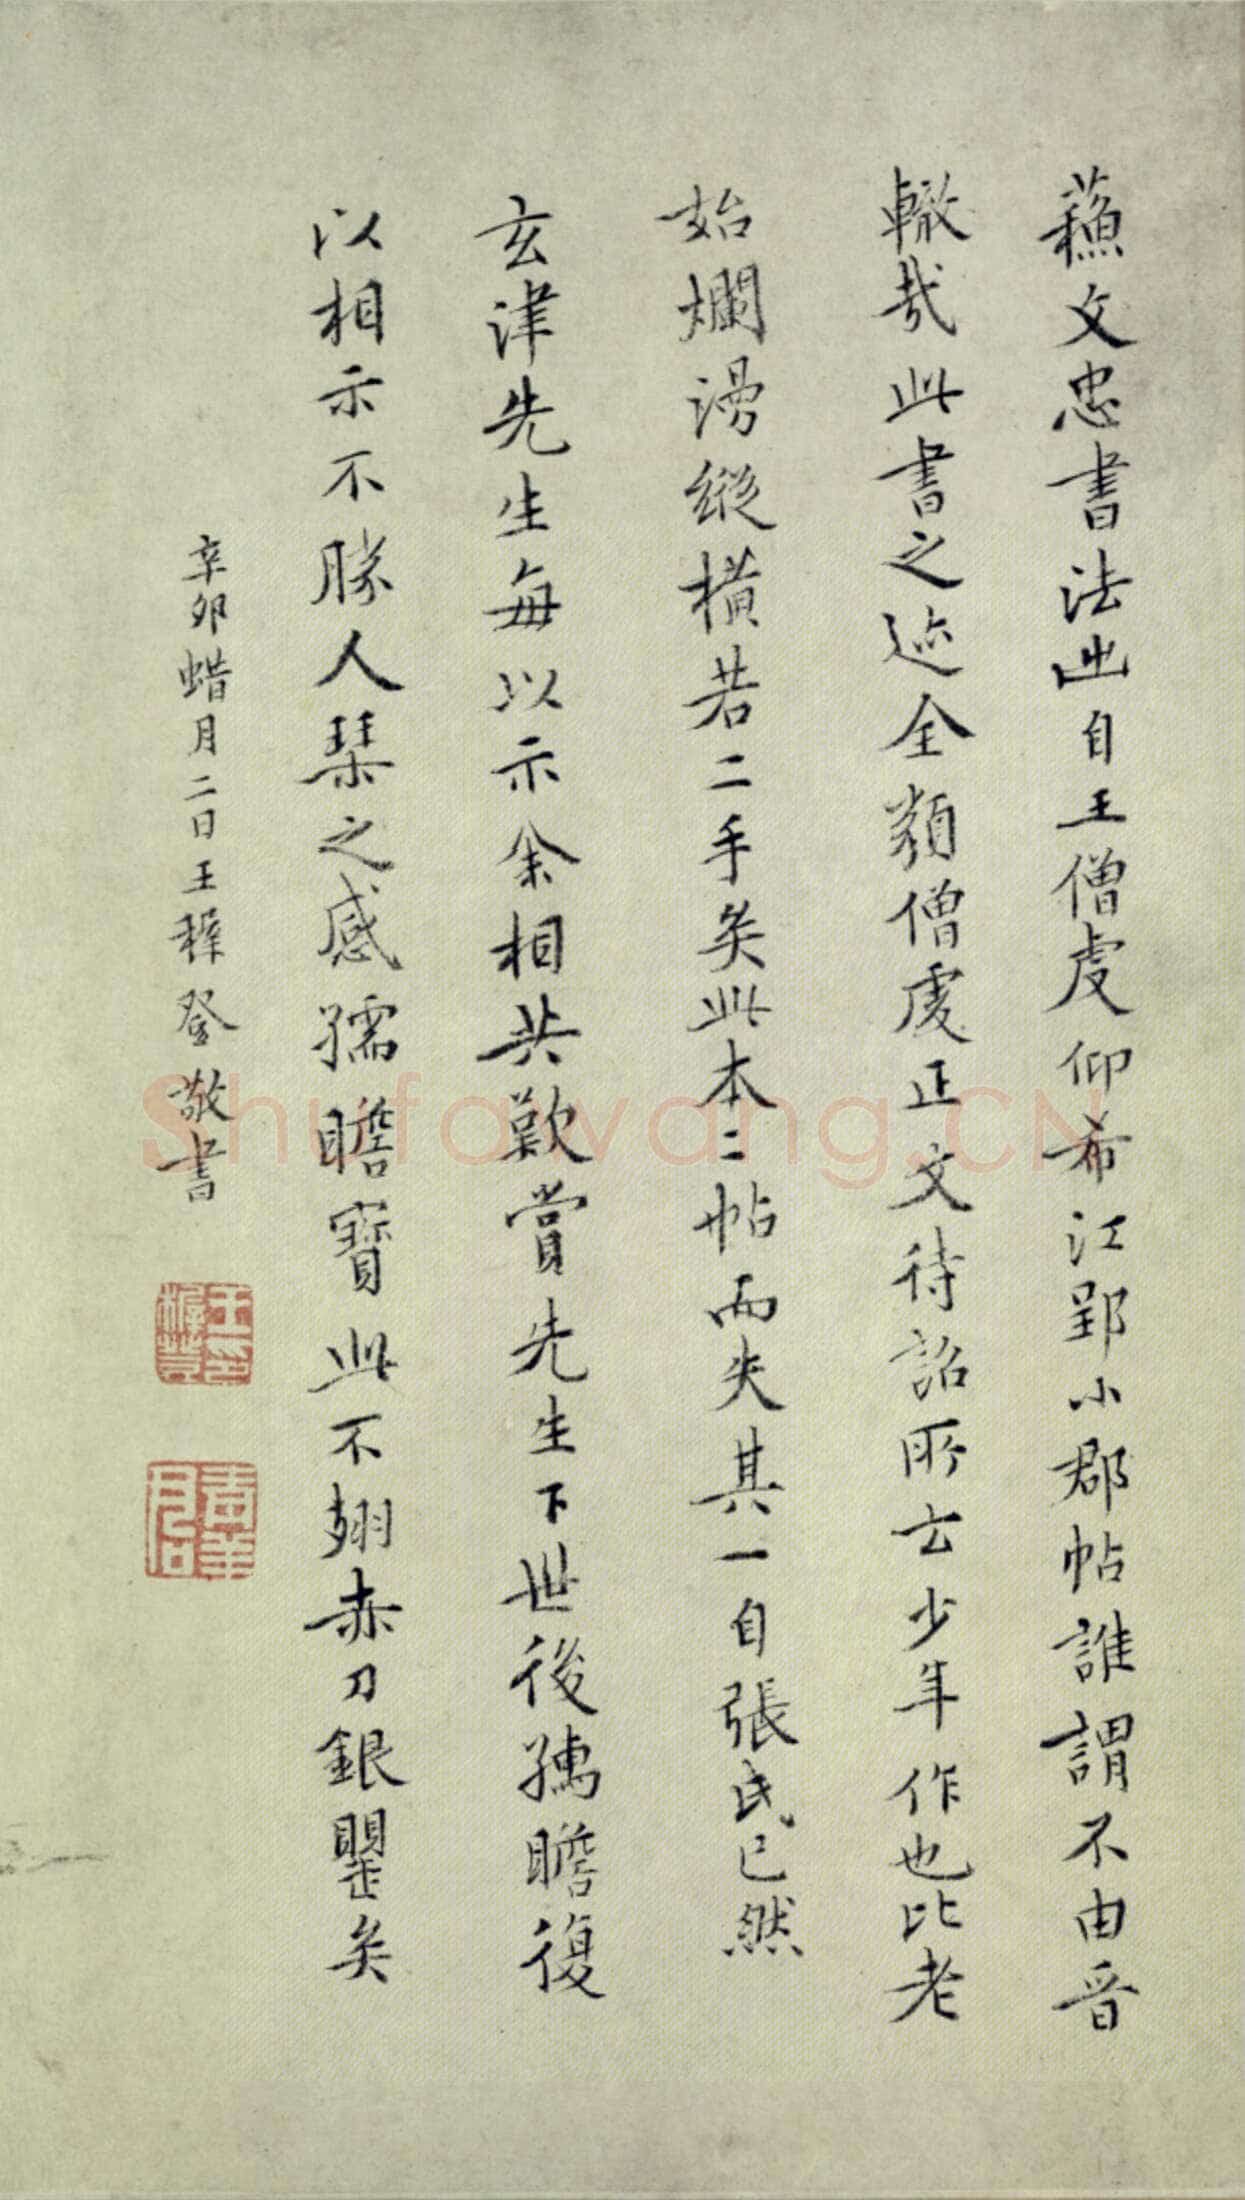 蘓文忠書法出自王僧虔仰希江郢小郡帖誰謂不由晋
轍哉此書之迹全類僧虔正文待詔所云少年作也比老
始爛漫縱橫若二手矣此本二帖而失其一自張氏已然
玄津先生每以示余相共歎賞先生下世後孺瞻復
以相示不勝人琹之感孺瞻寶此不翅赤刀銀瞿矣
辛卯蜡月二日王穉登敬書
Shufawang.CN